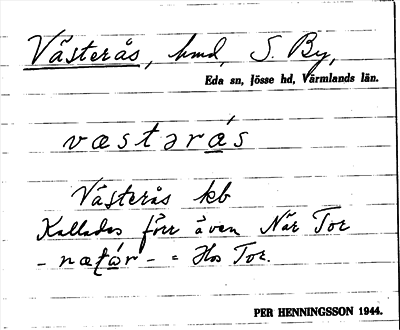 Västerås, hmd, S. By,
Eda sn, Jösse hd, Värmlands län.
væstərás
Västerås kb
Kallades förr även När Tor
- næṭår - = Hos Tor.
PER HENNINGSSON 1944.